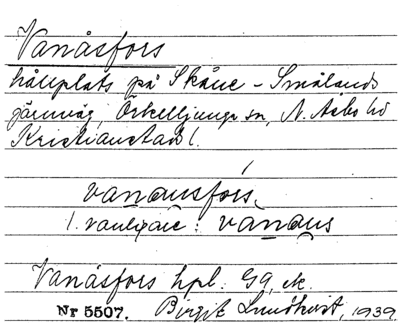 Vanåsfors
hållplats på Skåne - Smålands
järnväg, Örkelljunga sn, N. Åsbo hd
Kristianstads l.
vanausfors
l. vanligare: vanaus
Vanåsfors hpl. GG, ek.
Nr 5507. Birgit Lundkvist, 1939.